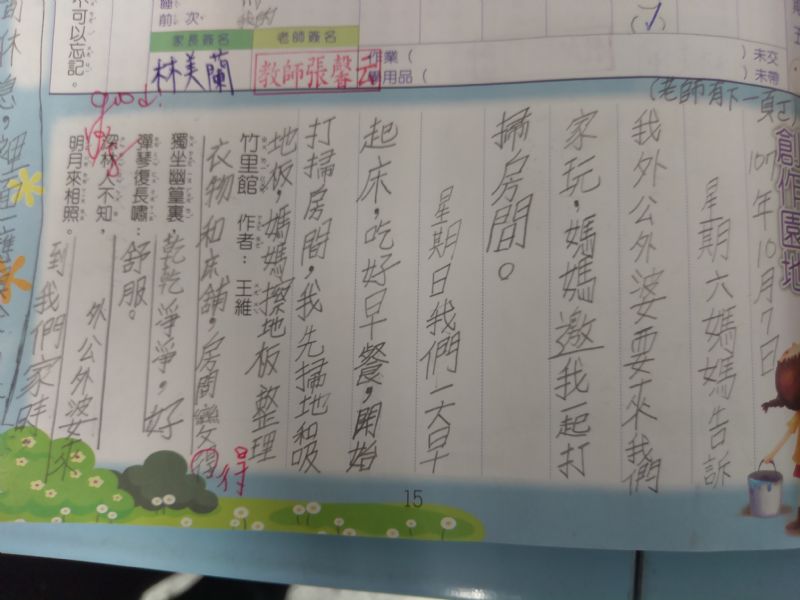 不可以忘記。
前次
家長簽名
老師簽名
林美蘭
教師張馨云
作業(
)未交
用品(
)未帶
(老師有下一頁
創作園地
107年10月7日
星期六媽媽告訴
我外公外婆要來我們
家玩,媽媽邀我一起打
掃房間。
星期日我們一大早
起床,吃好早餐,開始
打掃房間,我先掃地和吸
地板,媽媽擦地板整理
衣物和床舖,房間變得
得
乾乾淨淨,好
舒服。
外公外婆來
到我們家時
竹里館 作者:王維
獨坐幽篁裏,
彈琴復長嘯;
深林人不知,
明月來相照。
good!
15